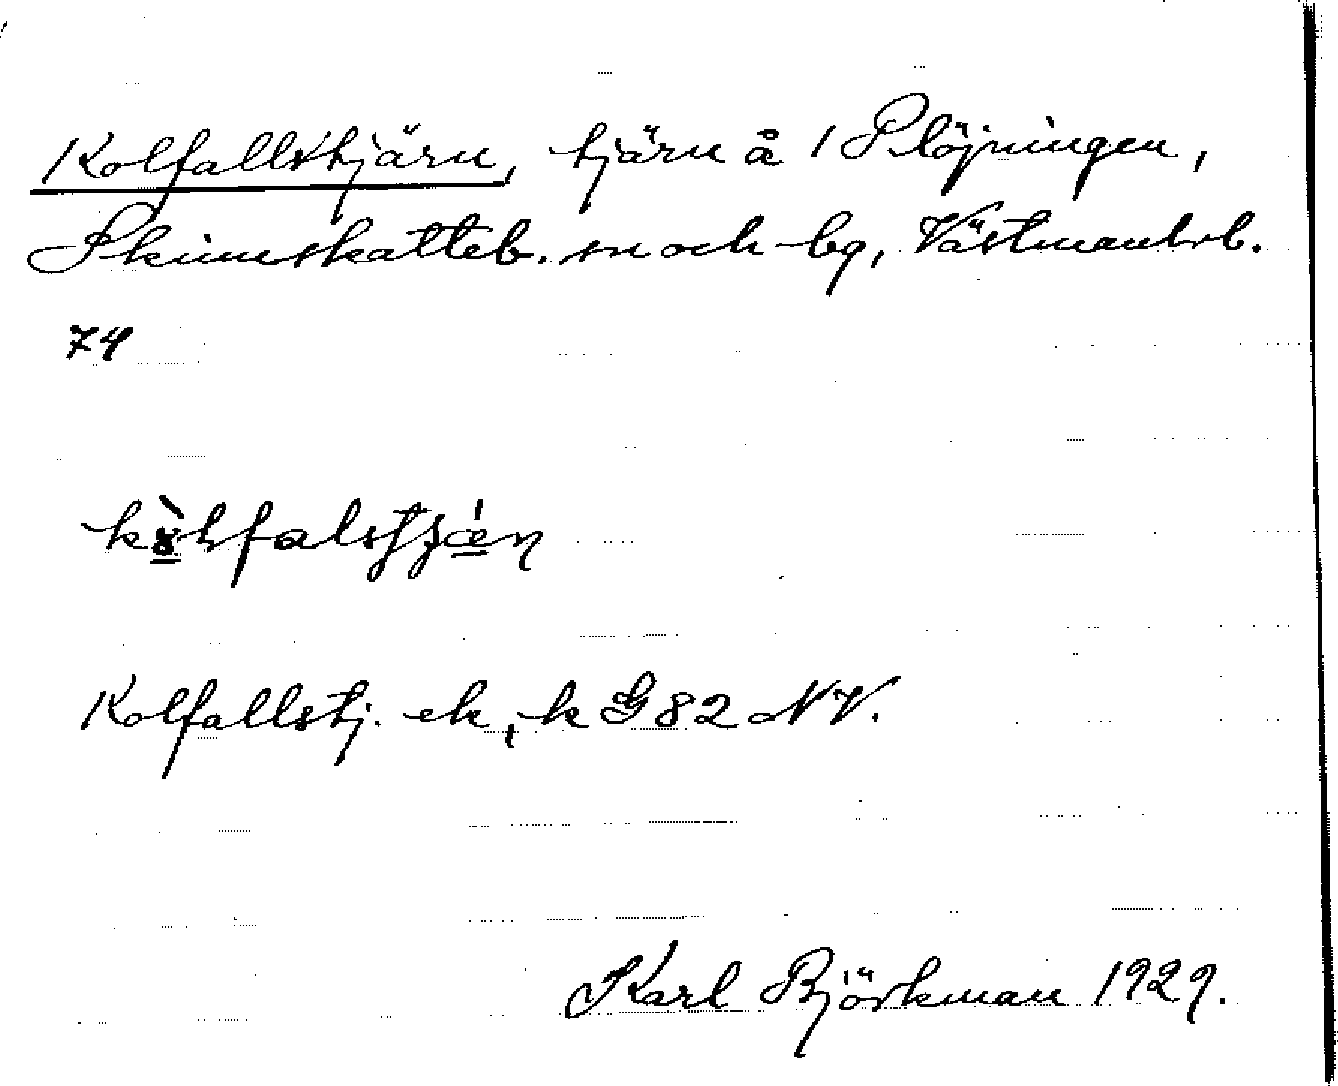 Kolfallstjärn, tjärn å 1 Plöjningen,
Skinnskatteb. sn och bg, Västmanl. l.
74
Kolfallstj. ek, k G 82 NV.
Karl Björkman 1929.